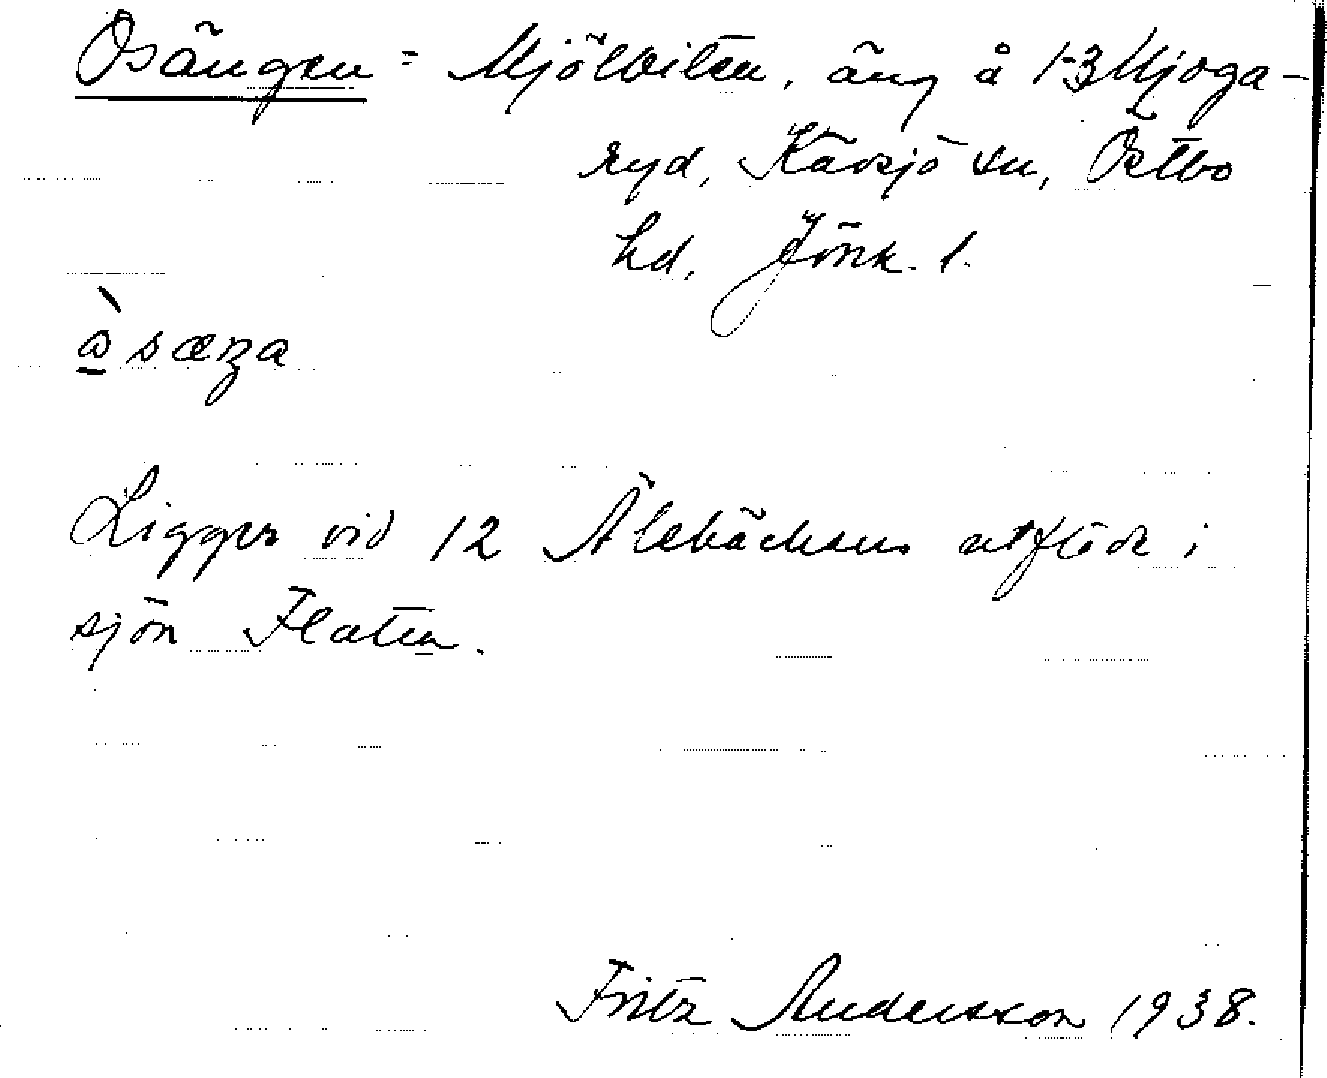 Osängen = Mjölviken, äng å 1-3 Mjoga-
ryd, Kävsjö sn, Östbo
hd, Jönk. l.
Ligger vid 12 Älebäckens utflöde i
sjön Flaten.
Fritz Andersson 1938.